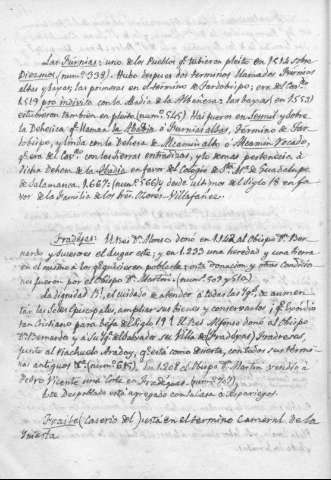 Las Purnias: uno de los Pueblos qe tubieron pleito en 1514 sobre
Diezmos (numo 338). Hubo despues dos terminos llamados Purnias
altas y bajas, las primeras en el termino de Sardobispo; era del
1519 pro indiviso con la Abadia de la Albañeza: las bajas (en 1553)
estubieron tambien en pleito (numo 545). Hai fueron en Jemal, y sobre
la Dehesica qe llaman la Abadia ó Purnias altas, término de Sar-
dobispo, y linda con la dehesa de Alcamin alto, ó Alcamin Pocado,
qe era del con las tierras entradizas, y lo demas pertenecia á
dicha Dehesa de la Abadia en favor del Colegio de Sta Ma de Guadalupe
de Salamanca, 1667 (numo 566) y desde ultimos del Siglo 18 en fa-
vor de la Familia de los Sres Ozores Villafañez.
Fradejas: El Rei Dn Alonso donó en 1142 al Obispo Dn Ber-
nardo y sucesores el lugar este; y en 1233 una heredad y una tierra
en el medio á los qe quisieren poblarla: esta donacion y otras condicio-
nes fueron por el Obispo Dn Martin. (numos 509 y 510)
La dignidad el cuidado de atender á todas las Igs de aumen-
tar las Sedes Episcopales, ampliar sus bienes y conservarlos
tan Cristiano para befa del Siglo 19! El Rei Alfonso donó al Obispo
Dn Bernardo y á su Iga del Salvador su Villa de (Fradejas) Fradexas,
junto al Riachuelo Aradoy, qe está como desierta, con todos sus térmi-
nos antiguos Da (numo 685). En 1208 el Obispo Dn Martin vendió á
Pedro Vicente una Corte en Fradejas. (numo 707)
Este Despoblado está agregado con la Casa á Aspariegos.
Fraile (Caserio del) está en el termino Cameral de la
Tuerta.